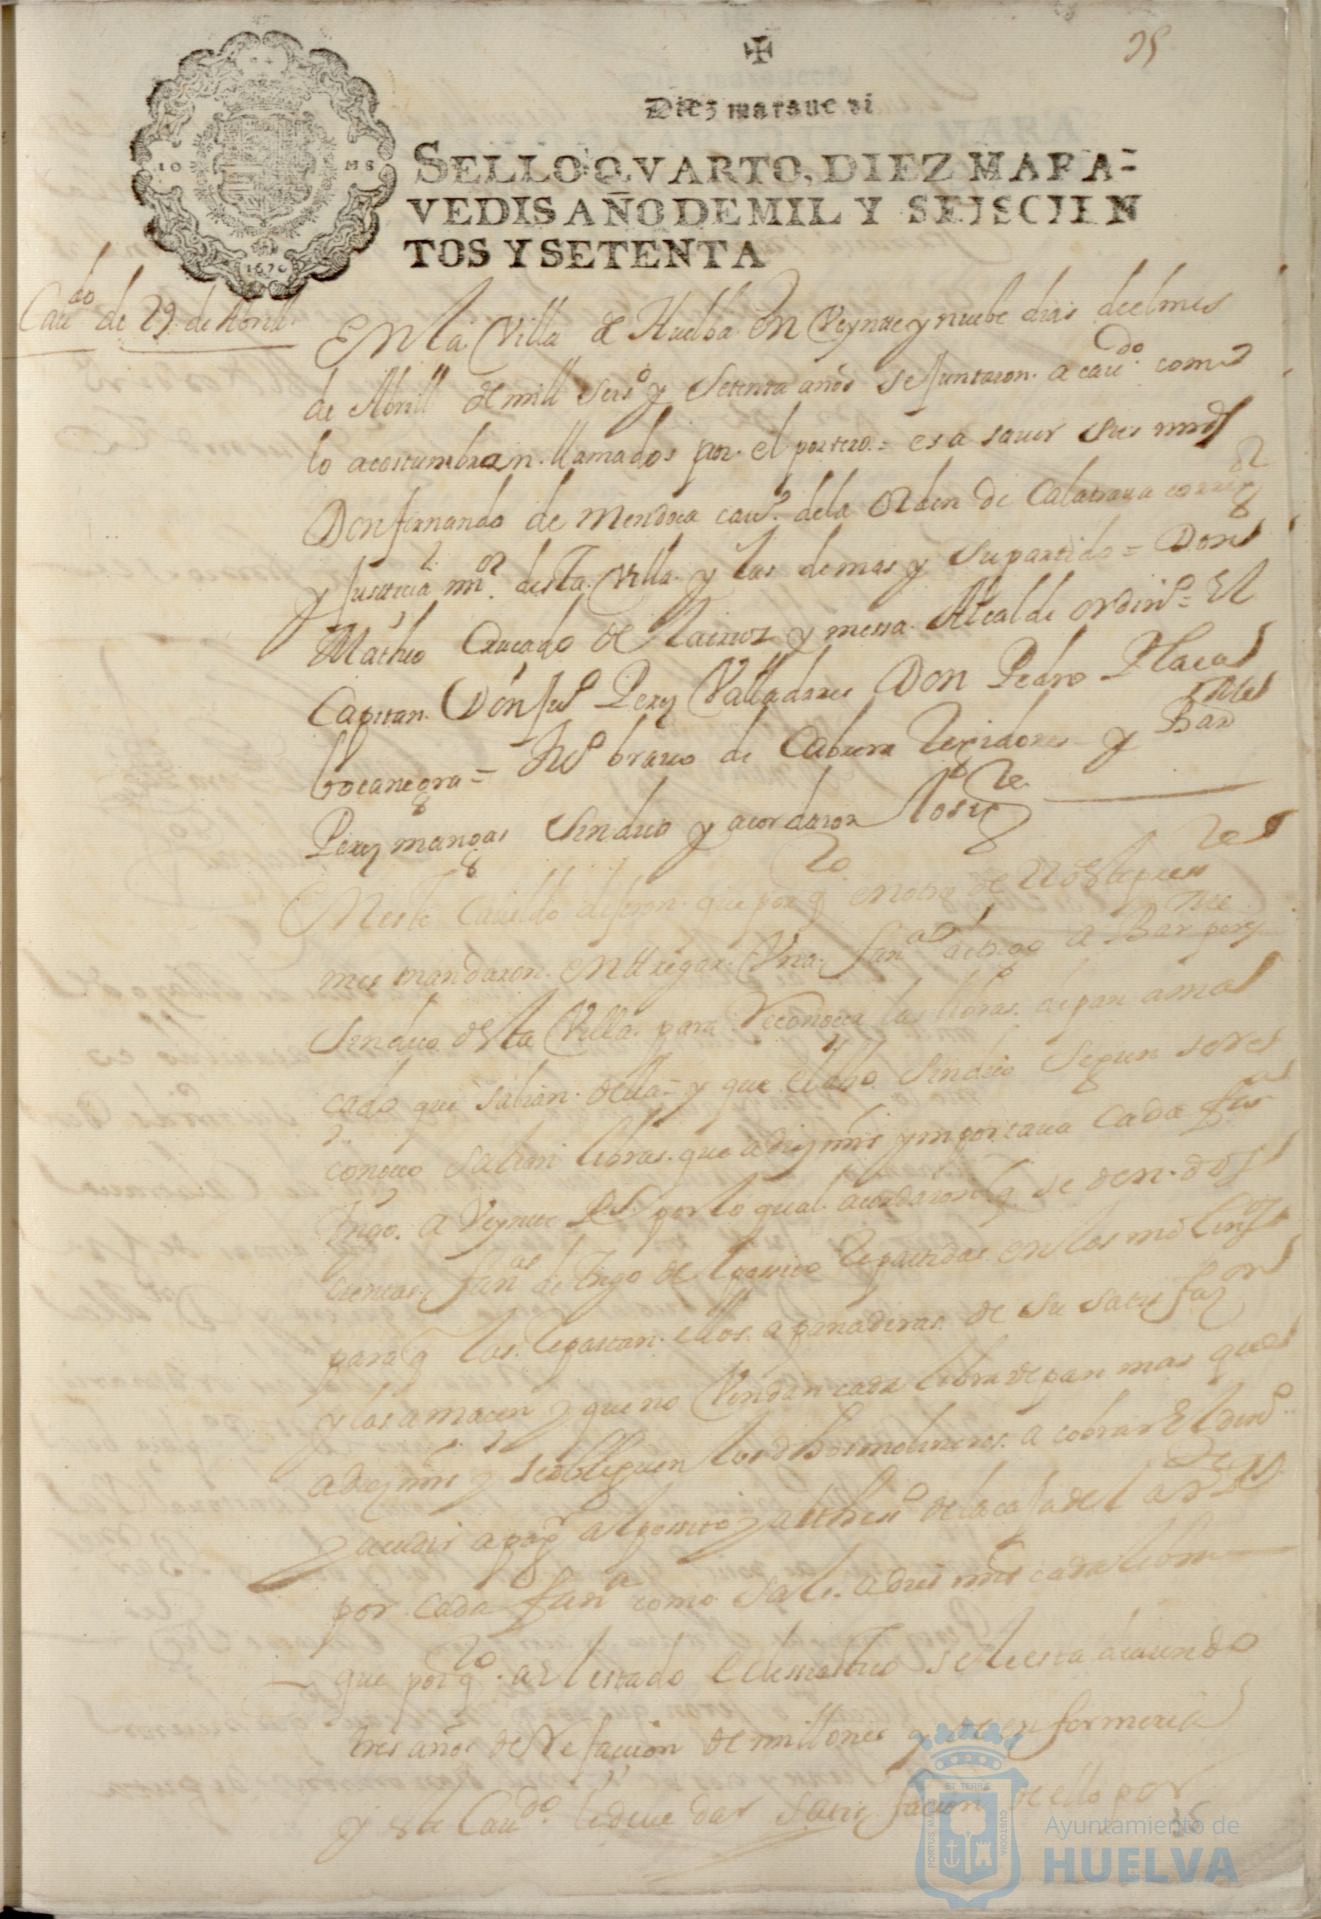 35
Diez maraue di
SELLO QVARTO, DIEZ MARA-
VEDIS AÑO DE MIL Y SEISCIEN
TOS Y SETENTA
1670
Caudo de 29 de Abrill
En la Villa de Huelba en Veynte y nuebe dias deel mes
de Abrill de mill seisº y setenta años se Juntaron a caudo como
lo acostumbran llamados por el portero = es a sauer sus mrds
Don fernando de Mendoca cauº dela Orden de Calatraua
y Justicia desta Villa y las demas y su partido = Don
Matheo de y messa Alcalde ordinº = El
Capitan Don Juº Perez Valladares Don Pedro
bocanegra = brauo de Cabrera Rexidores y Bar
Perez mangas Sindico y acordaron lo sigte
En este Cauildo dixeron que por q en otro de
mes mandaron entregar Vna fana de trigo a Bar perez
Sindico desta Villa para Reconocer las libras de pan ama
cado que salian della = y que el dho Sindico segun se re
conocio salian libras que a diez mrs ymportaua cada fana
trigo a Veynte Rs por lo qual acordaron q se den dos
cientas fanas de trigo de el posito Repartidas en los molinos
para q las Repartan ellos a panaderas de su satisfaz
y las amacen y que no Vendan cada libra de pan mas que
a diez mrs y se obliguen los dhos molineros a cobrar El dinº
y acudir a pagr al posito y al thesº de la caxa del
por cada fana como sale a dies mrs cada libra
que por q al estado eclesiastico se le esta deuiendo
tres años de Refaccion de millones y de enfermeria
y este Caudo le deue dar satisfacion de ello por
Ayuntamiento de
HUELVA